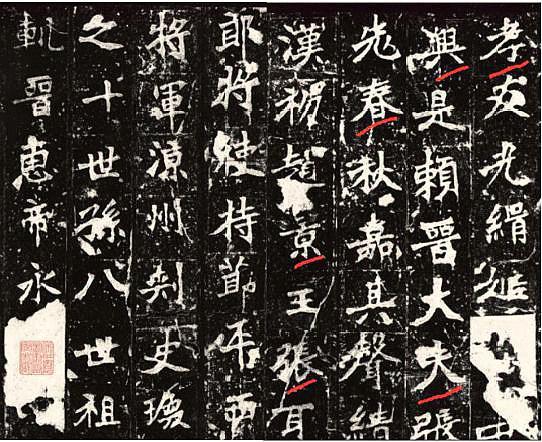 孝友光緝姬
興是賴晉大夫張
老春秋嘉其聲績
漢初趙景王張耳
郎將使持節平西
將軍涼州刺史瑍
之十世孫八世祖
軌晉惠帝永